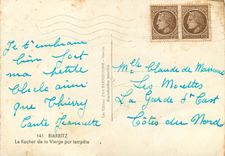 Je t'embrasse
bien fort
ma petite
Cloclo ainsi
que Thierry
Tante Jeannette
Mlle Claude de
Les Mouettes
La Garde St Cast
Côtes du Nord
141 BIARRITZ
Le Rocher de la Vierge par tempête